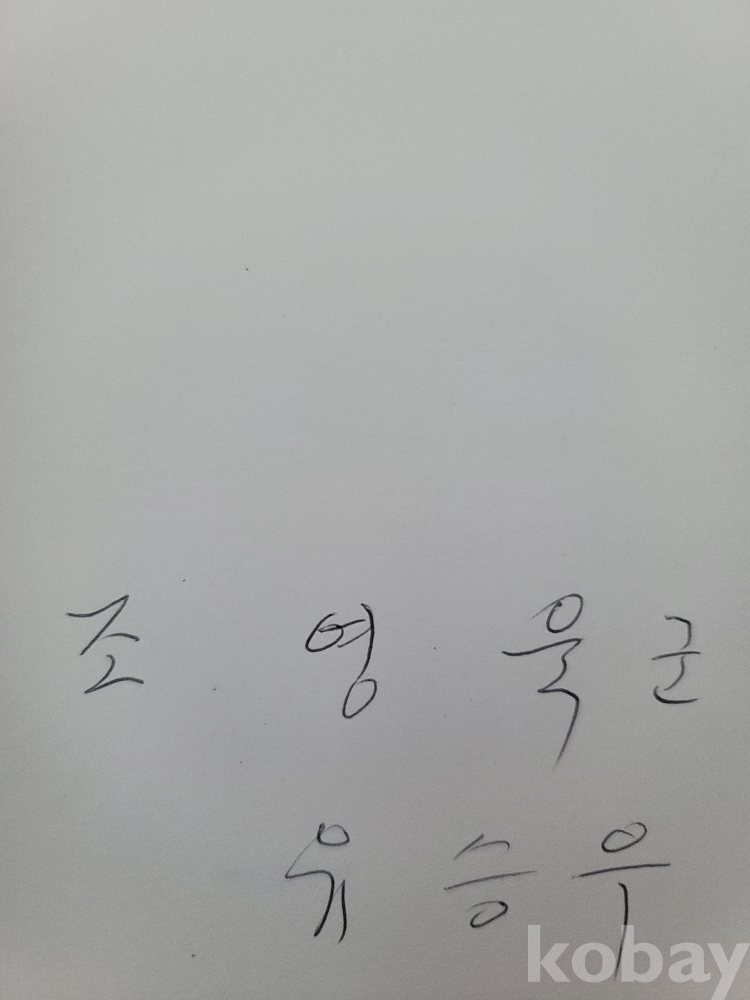 조 영 욱 군
유 승 우
kobay